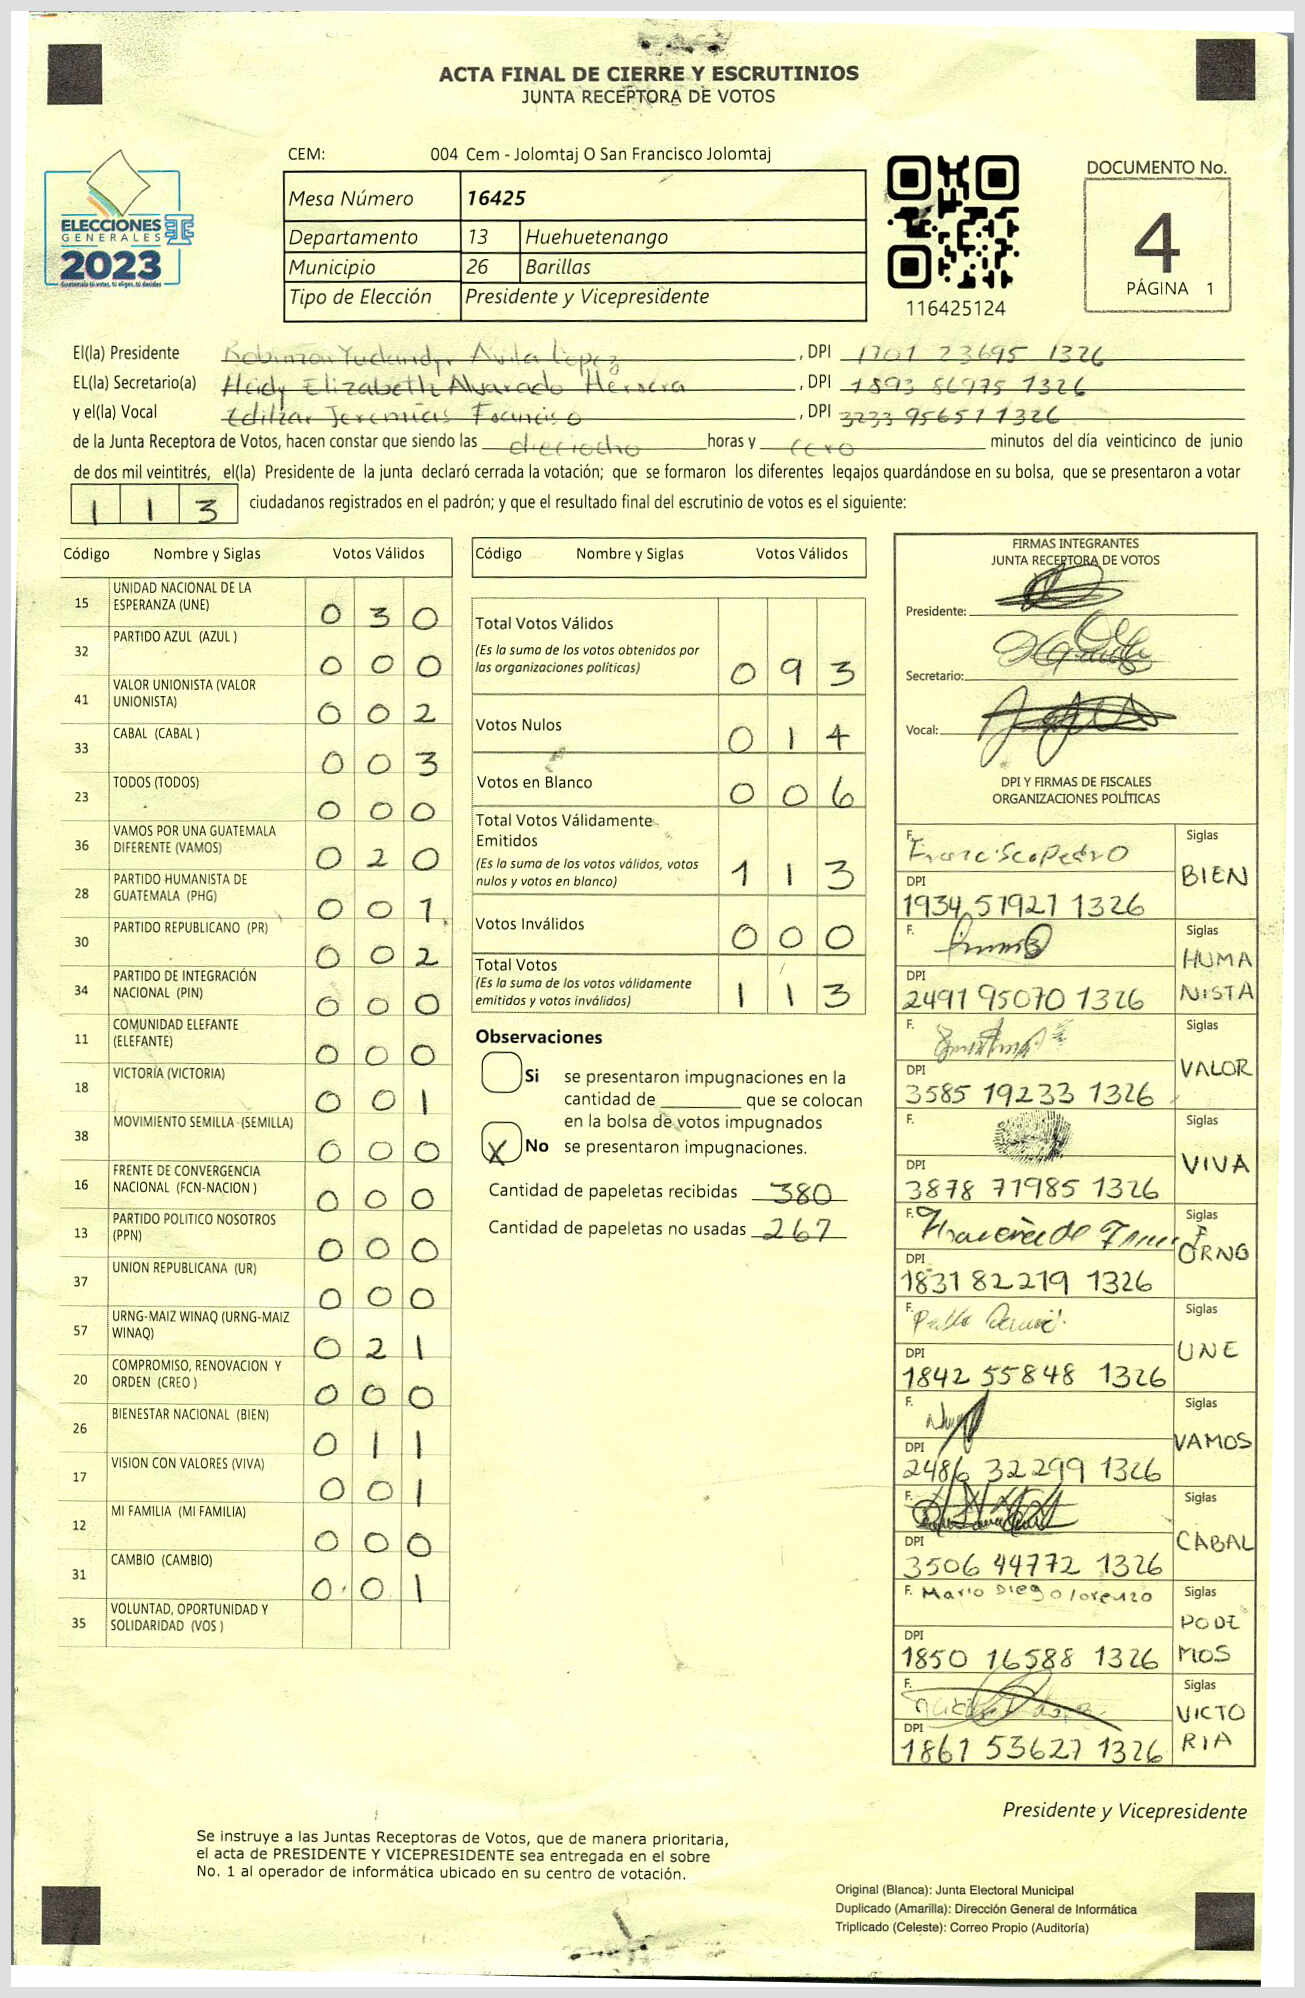 ACTA FINAL DE CIERRE Y ESCRUTINIOS
JUNTA RECEPTORA DE VOTOS
CEM: 004 Cem - Jolomtaj O San Francisco Jolomtaj
DOCUMENTO No.
4
PÁGINA 1
ELECCIONES
GENERALES
2023
Guatemala tú votas, tú eliges, tú decides
Mesa Número 16425
Departamento 13 Huehuetenango
Municipio 26 Barillas
Tipo de Elección Presidente y Vicepresidente
116425124
El(la) Presidente Robinzon Yudandyr Avila Lopez , DPI 1701 23695 1326
EL(la) Secretario(a) Heidy Elizabeth Alvarado Herrera , DPI 1893 86975 1326
y el(la) Vocal Edilzar Jeremias Francisco , DPI 3233 95651 1326
de la Junta Receptora de Votos, hacen constar que siendo las dieciocho horas y cero minutos del día veinticinco de junio
de dos mil veintitrés, el(la) Presidente de la junta declaró cerrada la votación; que se formaron los diferentes legajos guardándose en su bolsa, que se presentaron a votar
1 1 3 ciudadanos registrados en el padrón; y que el resultado final del escrutinio de votos es el siguiente:
Código Nombre y Siglas Votos Válidos
15 UNIDAD NACIONAL DE LA
ESPERANZA (UNE) 0 3 0
32 PARTIDO AZUL (AZUL ) 0 0 0
41 VALOR UNIONISTA (VALOR
UNIONISTA) 0 0 2
33 CABAL (CABAL ) 0 0 3
23 TODOS (TODOS) 0 0 0
36 VAMOS POR UNA GUATEMALA
DIFERENTE (VAMOS) 0 2 0
28 PARTIDO HUMANISTA DE
GUATEMALA (PHG) 0 0 1
30 PARTIDO REPUBLICANO (PR) 0 0 2
34 PARTIDO DE INTEGRACIÓN
NACIONAL (PIN) 0 0 0
11 COMUNIDAD ELEFANTE
(ELEFANTE) 0 0 0
18 VICTORIA (VICTORIA) 0 0 1
38 MOVIMIENTO SEMILLA (SEMILLA) 0 0 0
16 FRENTE DE CONVERGENCIA
NACIONAL (FCN-NACION ) 0 0 0
13 PARTIDO POLITICO NOSOTROS
(PPN) 0 0 0
37 UNION REPUBLICANA (UR) 0 0 0
57 URNG-MAIZ WINAQ (URNG-MAIZ
WINAQ) 0 2 1
20 COMPROMISO, RENOVACION Y
ORDEN (CREO ) 0 0 0
26 BIENESTAR NACIONAL (BIEN) 0 1 1
17 VISION CON VALORES (VIVA) 0 0 1
12 MI FAMILIA (MI FAMILIA) 0 0 0
31 CAMBIO (CAMBIO) 0 0 1
35 VOLUNTAD, OPORTUNIDAD Y
SOLIDARIDAD (VOS )
Código Nombre y Siglas Votos Válidos
Total Votos Válidos
(Es la suma de los votos obtenidos por
las organizaciones políticas) 0 9 3
Votos Nulos 0 1 4
Votos en Blanco 0 0 6
Total Votos Válidamente
Emitidos
(Es la suma de los votos válidos, votos
nulos y votos en blanco) 1 1 3
Votos Inválidos 0 0 0
Total Votos
(Es la suma de los votos válidamente
emitidos y votos inválidos) 1 1 3
Observaciones
Si se presentaron impugnaciones en la
cantidad de ________ que se colocan
en la bolsa de votos impugnados
X No se presentaron impugnaciones.
Cantidad de papeletas recibidas 380
Cantidad de papeletas no usadas 267
FIRMAS INTEGRANTES
JUNTA RECEPTORA DE VOTOS
Presidente:
Secretario:
Vocal:
DPI Y FIRMAS DE FISCALES
ORGANIZACIONES POLÍTICAS
F. Francisco Pedro Siglas
DPI BIEN
1934 51921 1326
F. Siglas
HUMA
DPI NISTA
2491 95070 1326
F. Siglas
DPI VALOR
3585 19233 1326
F. Siglas
DPI VIVA
3878 71985 1326
F. Siglas
DPI ORNG
1831 82219 1326
F. Siglas
DPI UNE
1842 55848 1326
F. Siglas
DPI VAMOS
2486 32299 1326
F. Siglas
DPI CABAL
3506 44772 1326
F. Mario Diego lorenzo Siglas
PODE
DPI MOS
1850 16588 1326
F. Siglas
VICTO
DPI RIA
1861 53627 1326
Presidente y Vicepresidente
Se instruye a las Juntas Receptoras de Votos, que de manera prioritaria,
el acta de PRESIDENTE Y VICEPRESIDENTE sea entregada en el sobre
No. 1 al operador de informática ubicado en su centro de votación.
Original (Blanca): Junta Electoral Municipal
Duplicado (Amarilla): Dirección General de Informática
Triplicado (Celeste): Correo Propio (Auditoría)